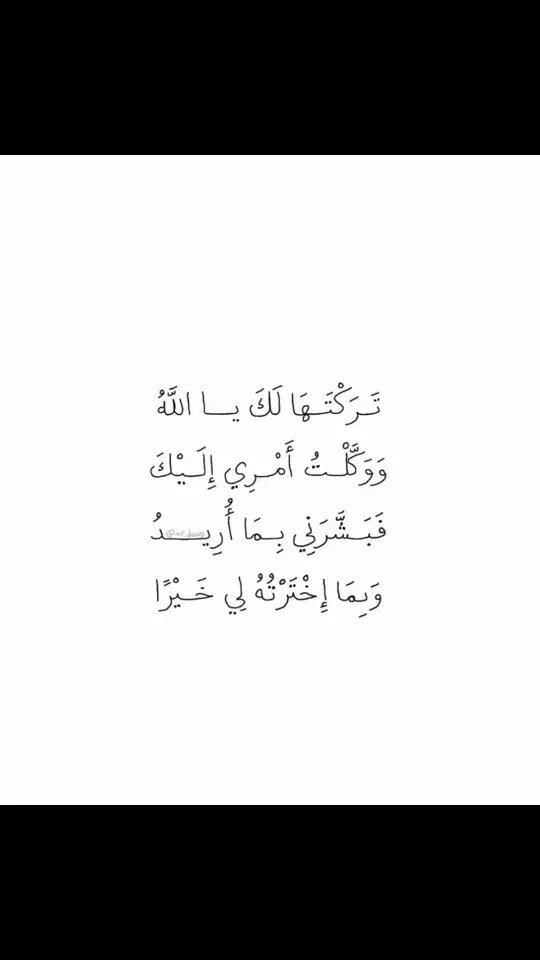 تَـرَكْتَـهَا لَكَ يـــا اللَّهُ
وَوَكَّلْــتُ أَمْــرِي إِلَــيْـكَ
فَـبَـشَّرَنِي بِـمَا أُرِيـــــدُ
وَبِمَا إِخْتَرْتُهُ لِي خَــيْرًا